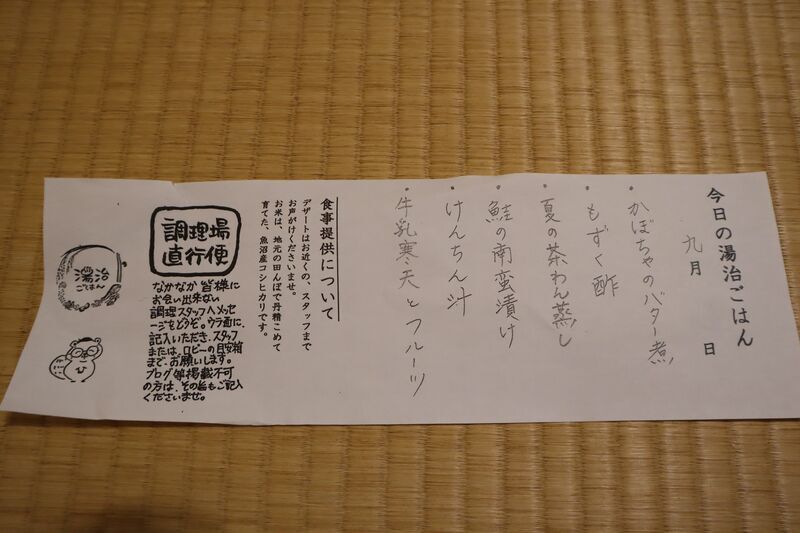 今日の湯治ごはん
九月　日
・かぼちゃのバター煮
・もずく酢
・夏の茶わん蒸し
・鮭の南蛮漬け
・けんちん汁
・牛乳寒天とフルーツ
食事提供について
デザートはお近くの、スタッフまで
お声がけくださいませ。
お米は、地元の田んぼで丹精こめて
育てた、魚沼産コシヒカリです。
調理場
直行便
なかなか皆様に
お会い出来ない
調理スタッフへメッセ
ージをどうぞ。ウラ面に、
記入いただき、スタッフ
または、ロビーの目安箱
まで、お願いします。
ブログ等掲載不可
の方は、その旨もご記入
くださいませ。
湯治
ごはん